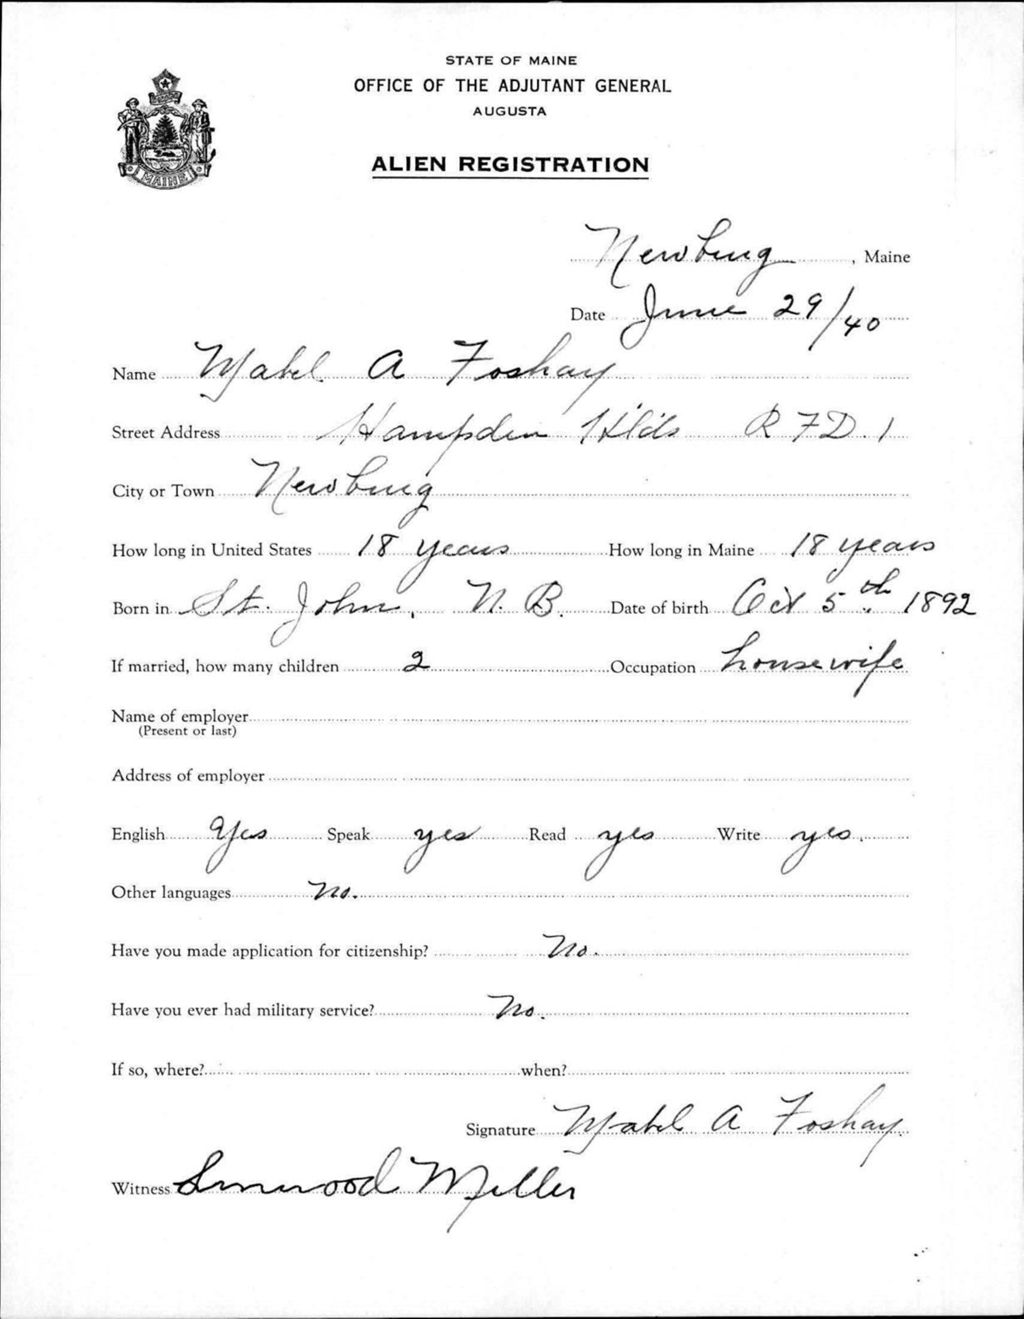 STATE OF MAINE
OFFICE OF THE ADJUTANT GENERAL
AUGUSTA
ALIEN REGISTRATION
MAINE
Newburg, Maine
Date June 29/40
Name Mabel A Foshay
Street Address Hampden Hlds R F D. 1
City or Town Newburg
How long in United States 18 years How long in Maine 18 years
Born in St. John, N. B. Date of birth Oct 5th 1892
If married, how many children 2 Occupation housewife
Name of employer
(Present or last)
Address of employer
English Yes Speak yes Read yes Write yes.
Other languages No.
Have you made application for citizenship? No.
Have you ever had military service? No.
If so, where? when?
Signature Mabel A Foshay
Witness Linwood Miller